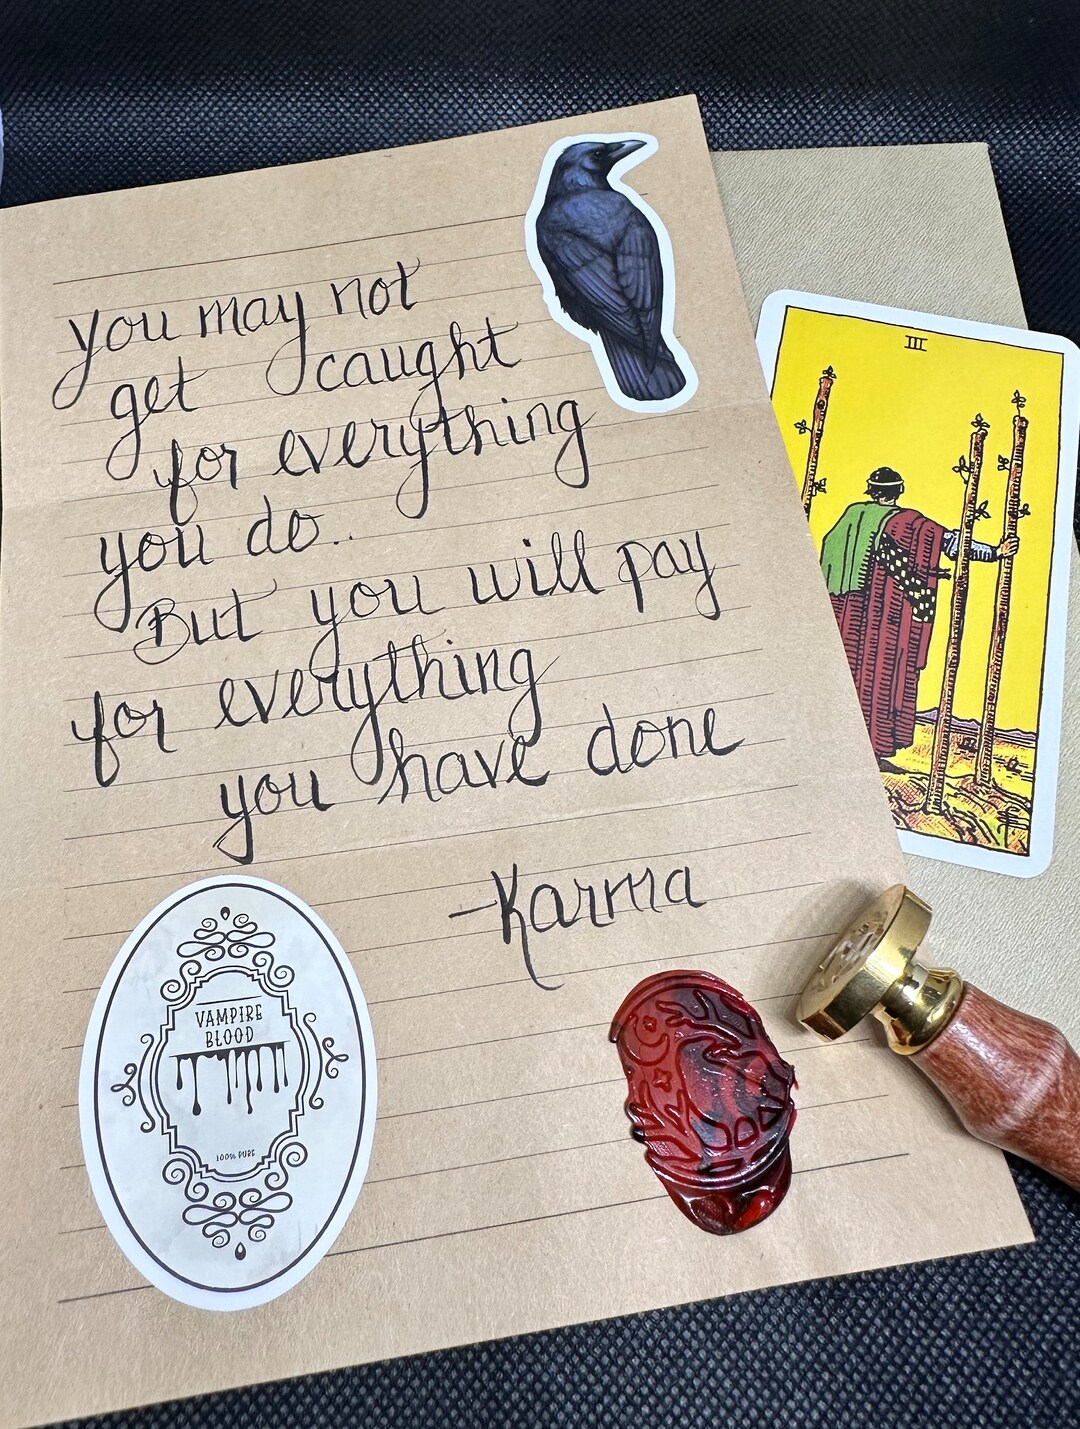 you may not
get caught
for everything
you do..
But you will pay
for everything
you have done
-Karma
III
VAMPIRE
BLOOD
100% PURE